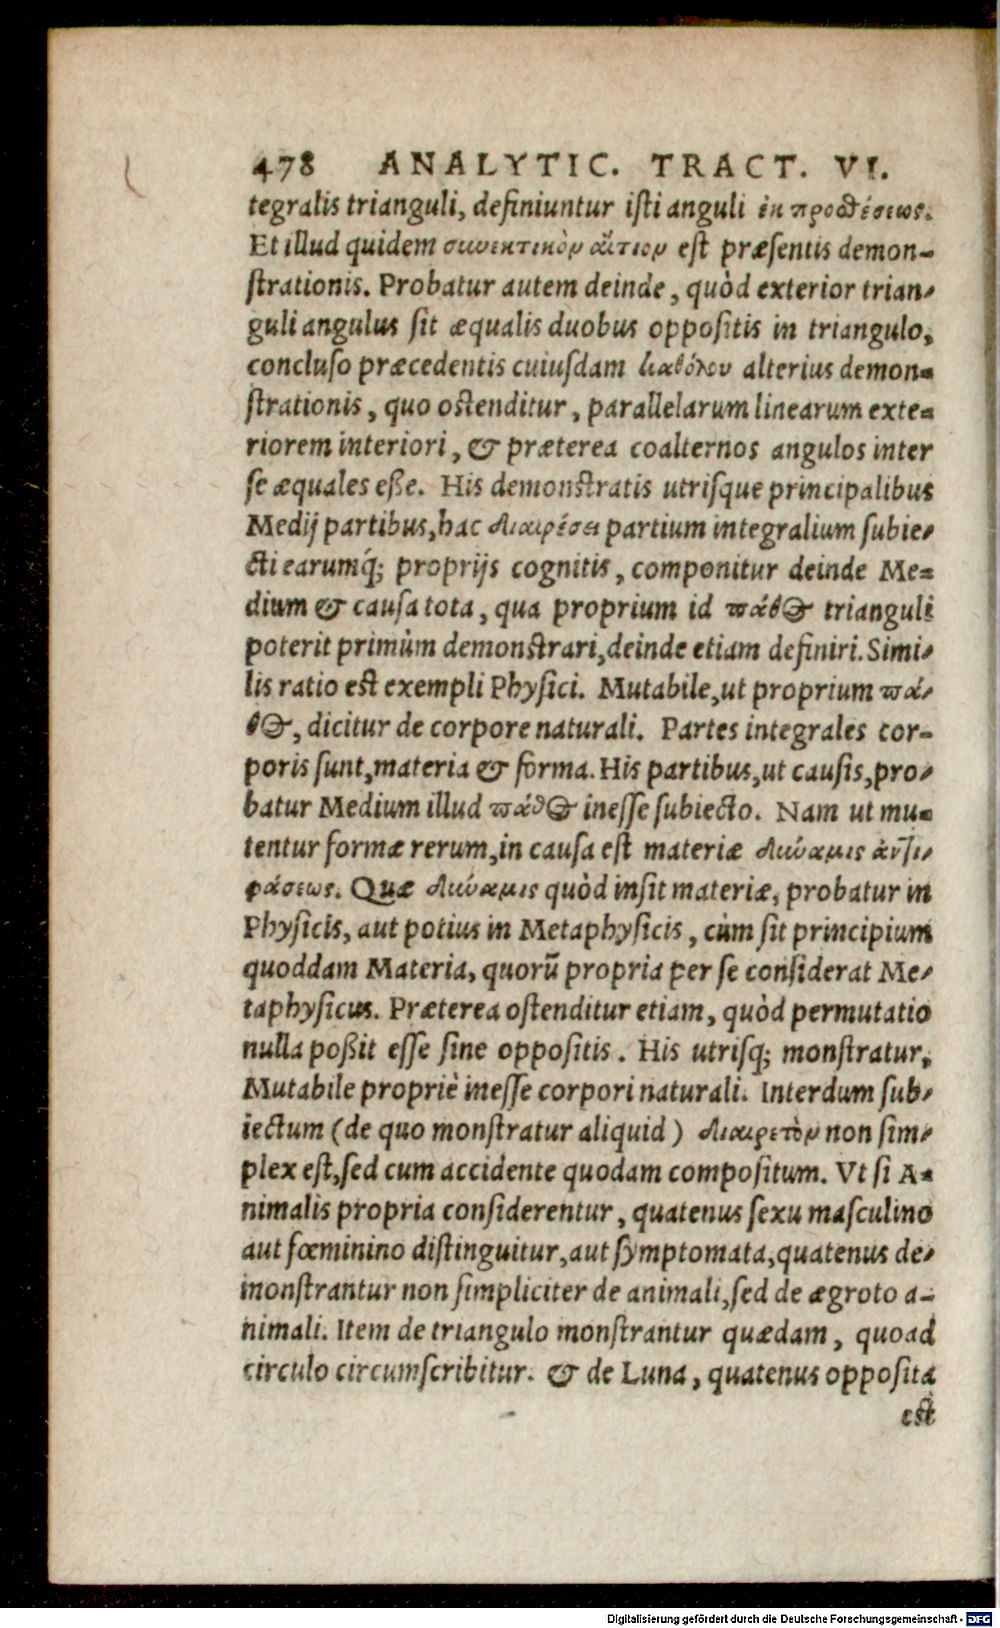 478 ANALYTIC. TRACT. VI.
tegralis trianguli, definiuntur iſti anguli ἐκ προσθέσεως.
Et illud quidem συνεκτικὸν αἴτιον est præſentis demon-
ſtrationis. Probatur autem deinde, quòd exterior trian-
guli angulus ſit æqualis duobus oppoſitis in triangulo,
concluſo præcedentis cuiuſdam διαθόλου alterius demon-
ſtrationis, quo oſtenditur, parallelarum linearum exte-
riorem interiori, & præterea coalternos angulos inter
ſe æquales eße. His demonſtratis utriſque principalibus
Medij partibus, hac διαιρέσει partium integralium ſubie-
cti earumq́; proprijs cognitis, componitur deinde Me-
dium & cauſa tota, qua proprium id πάθος trianguli
poterit primùm demonſtrari, deinde etiam definiri. Simi-
lis ratio est exempli Phyſici. Mutabile, ut proprium πά-
θος, dicitur de corpore naturali. Partes integrales cor-
poris ſunt, materia & forma. His partibus, ut cauſis, pro-
batur Medium illud πάθος ineſſe ſubiecto. Nam ut mu-
tentur formæ rerum, in cauſa est materiæ δύναμις ἀντι-
φάσεως. Quæ δύναμις quòd inſit materiæ, probatur in
Phyſicis, aut potius in Metaphyſicis, cùm ſit principium
quoddam Materia, quorũ propria per ſe conſiderat Me-
taphyſicus. Præterea oſtenditur etiam, quòd permutatio
nulla poßit eſſe ſine oppoſitis. His utriſq; monſtratur,
Mutabile propriè ineſſe corpori naturali. Interdum ſub-
iectum (de quo monſtratur aliquid) διαιρετὸν non ſim-
plex eſt, ſed cum accidente quodam compoſitum. Vt ſi A-
nimalis propria conſiderentur, quatenus ſexu maſculino
aut fœminino diſtinguitur, aut ſymptomata, quatenus de-
monſtrantur non ſimpliciter de animali, ſed de ægroto a-
nimali. Item de triangulo monſtrantur quædam, quoad
circulo circumſcribitur. & de Luna, quatenus oppoſita
est
Digitalisierung gefördert durch die Deutsche Forschungsgemeinschaft - DFG